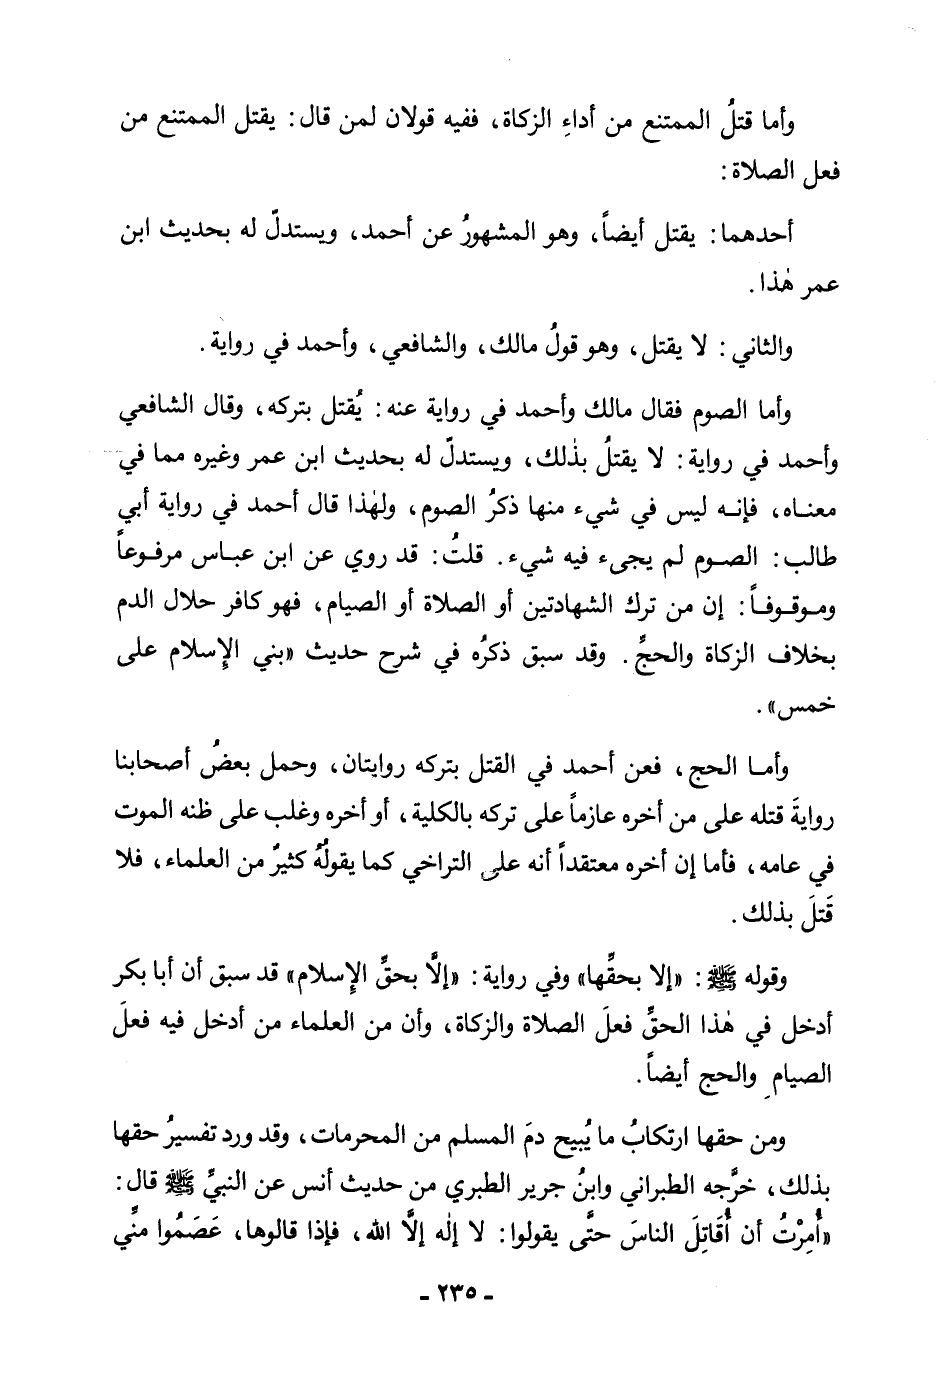 وأما قتلُ الممتنع من أداءِ الزكاة، ففيه قولان لمن قال: يقتل الممتنع من
فعل الصلاة:
أحدهما: يقتل أيضاً، وهو المشهورُ عن أحمد، ويستدلّ له بحديث ابن
عمر هٰذا.
والثاني: لا يقتل، وهو قولُ مالك، والشافعي، وأحمد في رواية.
وأما الصوم فقال مالك وأحمد في رواية عنه: يُقتل بتركه، وقال الشافعي
وأحمد في رواية: لا يقتلُ بذٰلك، ويستدلّ له بحديث ابن عمر وغيره مما في
معناه، فإنه ليس في شيء منها ذكرُ الصوم، ولهٰذا قال أحمد في رواية أبي
طالب: الصوم لم يجىء فيه شيء. قلتُ: قد روي عن ابن عباس مرفوعاً
وموقوفاً: إن من ترك الشهادتين أو الصلاة أو الصيام، فهو كافر حلال الدم
بخلاف الزكاة والحجِّ. وقد سبق ذكرُه في شرح حديث «بني الإِسلام على
خمس».
وأما الحج، فعن أحمد في القتل بتركه روايتان، وحمل بعضُ أصحابنا
روايةَ قتله على من أخره عازماً على تركه بالكلية، أو أخره وغلب على ظنه الموت
في عامه، فأما إن أخره معتقداً أنه على التراخي كما يقولُهُ كثيرٌ من العلماء، فلا
قَتلَ بذلك.
وقوله ﷺ: «إلا بحقِّها» وفي رواية: «إلَّا بحقِّ الإِسلام» قد سبق أن أبا بكر
أدخل في هٰذا الحقِّ فعلَ الصلاة والزكاة، وأن من العلماء من أدخل فيه فعلَ
الصيام والحج أيضاً.
ومن حقها ارتكابُ ما يُبيح دمَ المسلم من المحرمات، وقد ورد تفسيرُ حقها
بذلك، خرَّجه الطبراني وابنُ جرير الطبري من حديث أنس عن النبيِّ ﷺ قال:
«أُمِرْتُ أن أُقَاتِلَ الناسَ حتَّى يقولوا: لا إلٰه إلَّا الله، فإذا قالوها، عَصَمُوا منِّي
- ٢٣٥ -